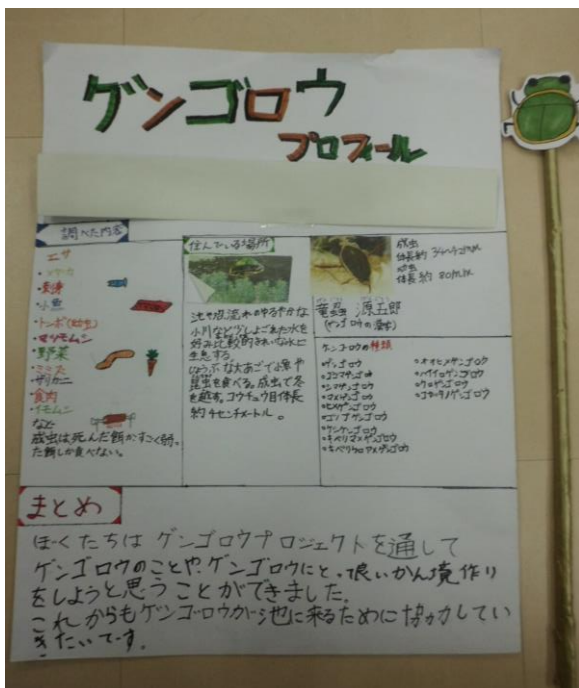 ゲンゴロウ
プロフィール
調べた内容
エサ
・メダカ
・刺身
・小魚
・トンボ(幼虫)
・マツモムシ
・野菜
・ミミズ
・ザリガニ
・食肉
・イモムシ
など
成虫は死んだ餌か、すごく弱っ
た餌しか食べない。
住んでいる場所
池や底流れのゆるやかな
小川など少しよごれた水を
好み比較的きれいな水に
生息する。
じょうぶな大あごで小魚や
昆虫を食べる。成虫で冬
を越す。コウチュウ目体長
約4センチメートル。
成虫
幼虫
体長約80mm
竜蝨 源五郎
(ゲンゴロウの漢字)
ゲンゴロウの種類
・ゲンゴロウ
・シマゲンゴロウ
・マメゲンゴロウ
・ヒメゲンゴロウ
・ケシゲンゴロウ
・キベリマメゲンゴロウ
・キベリクロヒメゲンゴロウ
・オオヒメゲンゴロウ
・ハイイロゲンゴロウ
・クロゲンゴロウ
まとめ
ぼくたちはゲンゴロウプロジェクトを通して
ゲンゴロウのことや、ゲンゴロウにとって良いかん境作り
をしようと思うことができました。
これからもゲンゴロウが池に来るために協力してい
きたいです。